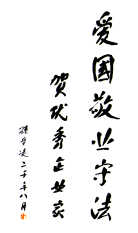 爱国敬业守法
贺优秀企业家
二千年八月